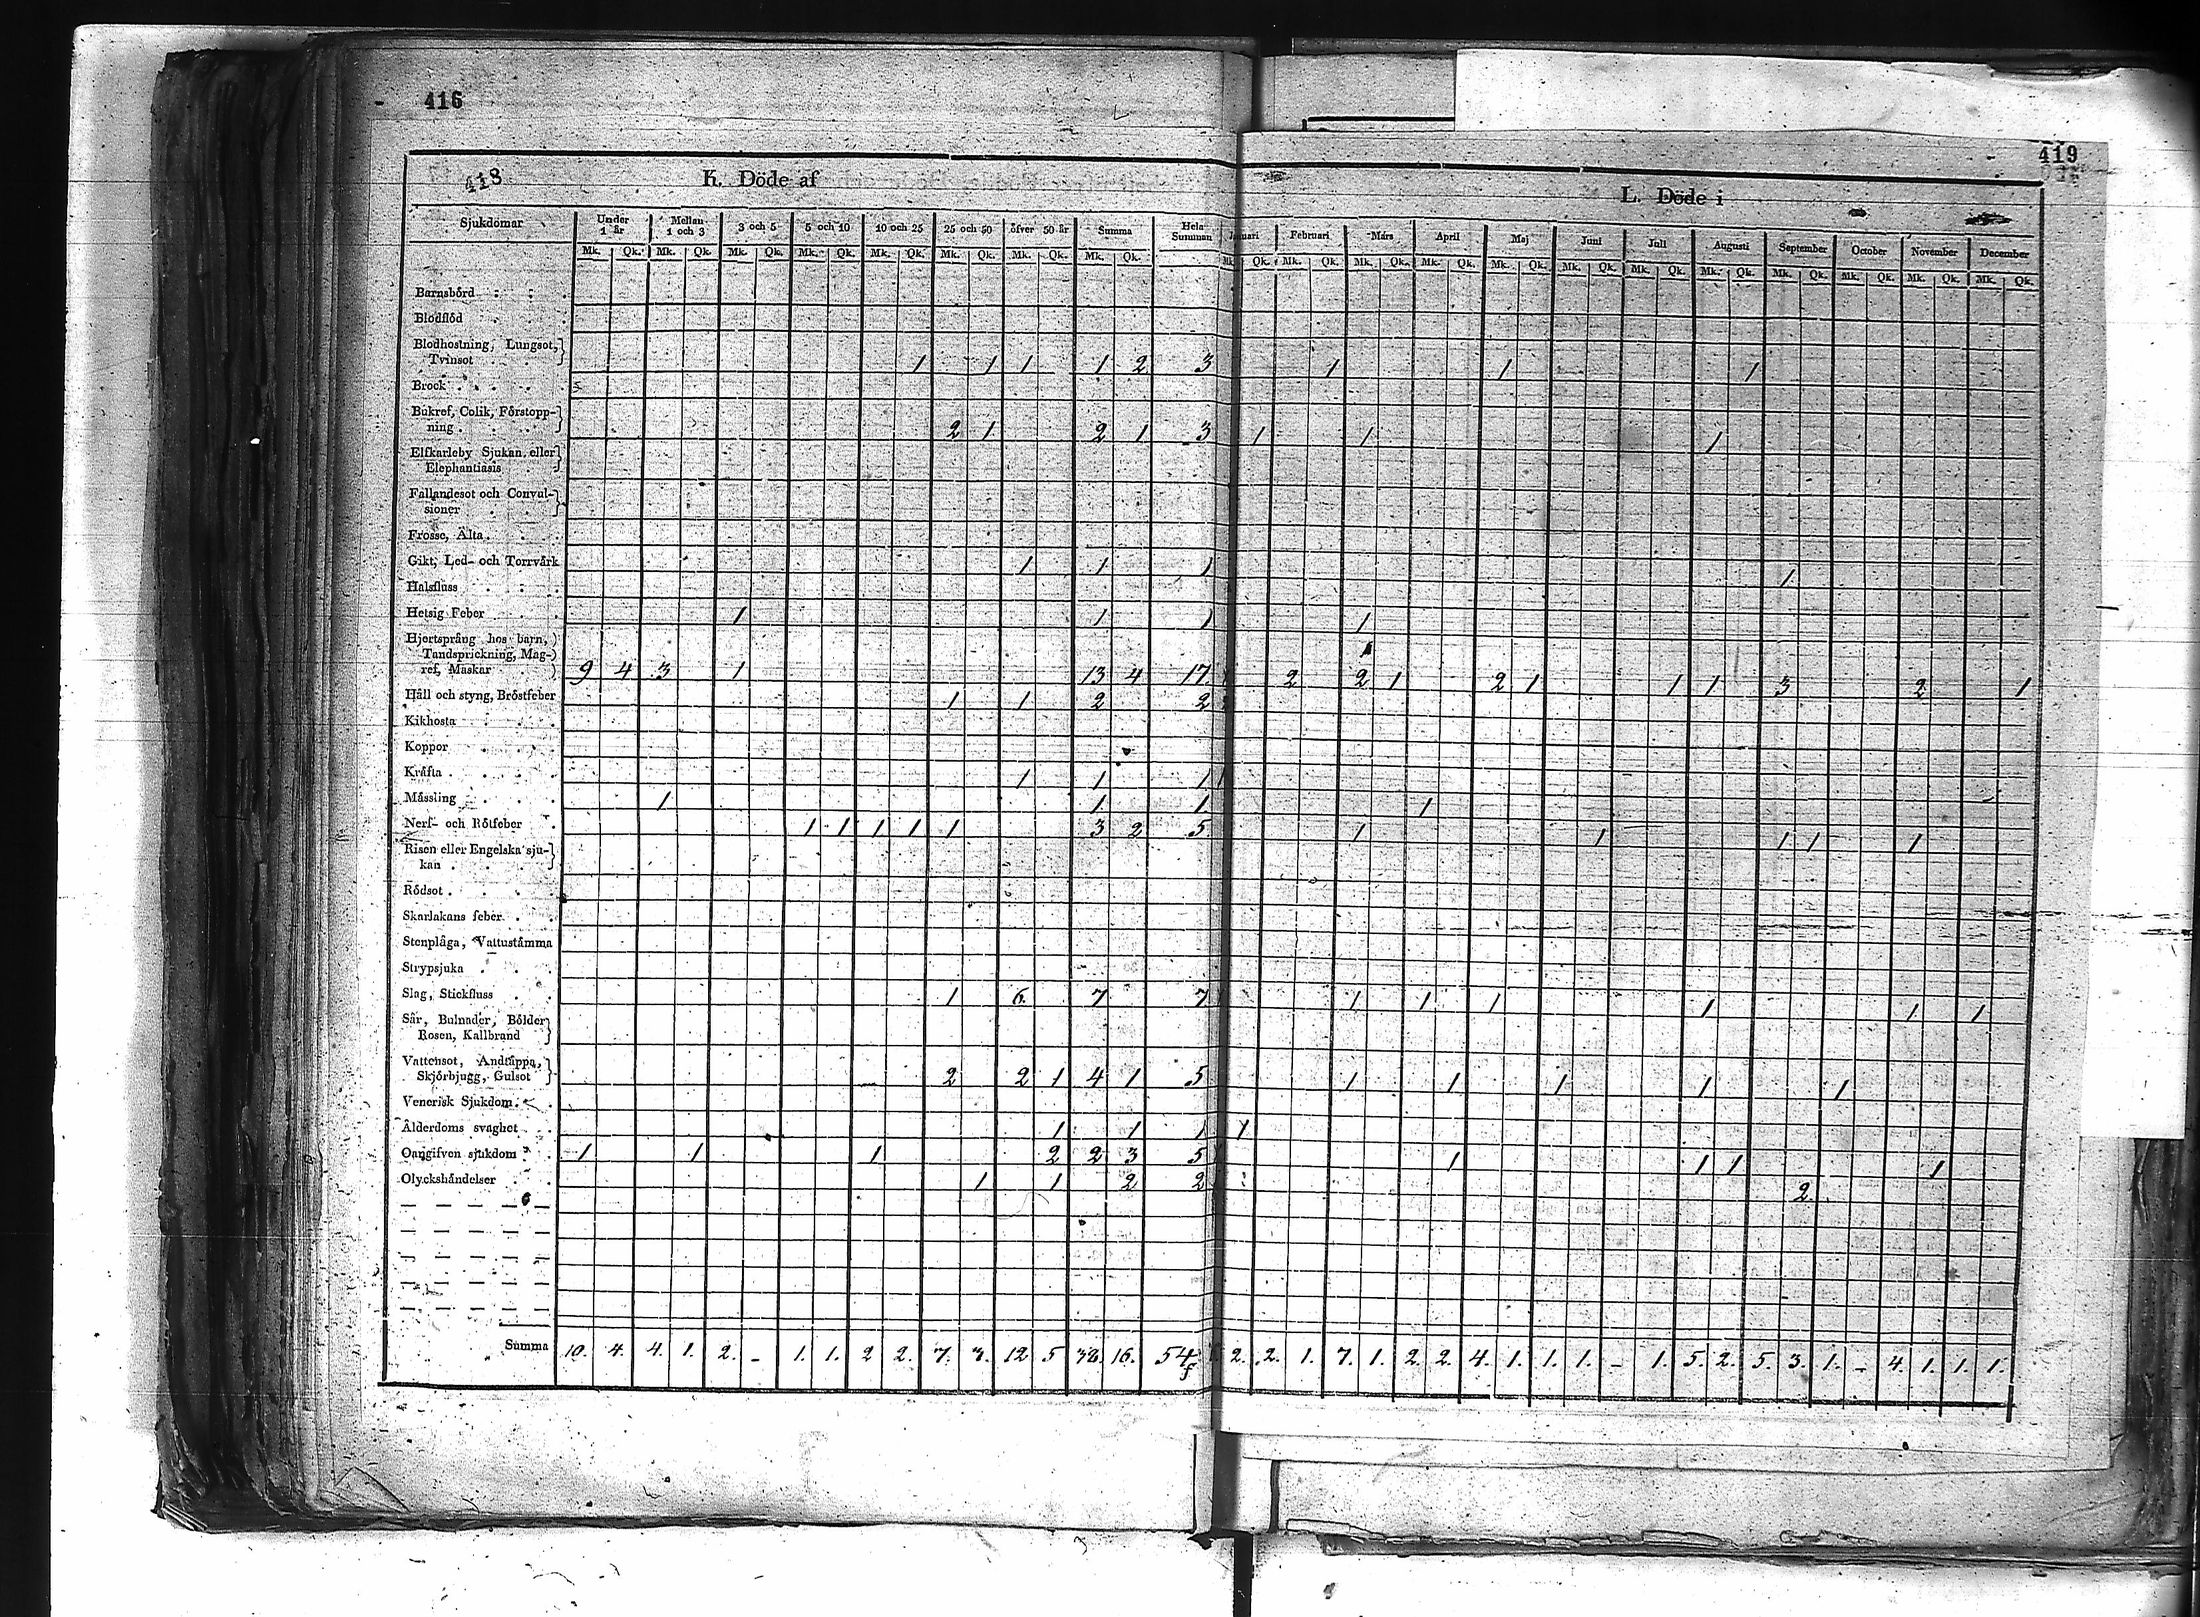 416
419
418
K. Döde af
L. Döde i
Sjukdomar Under 1 år Mellan 1 och 3 3 och 5 5 och 10 10 och 25 25 och 50 öfver 50 år Summa Hela Summan Februari Mars April Maj Juni Juli Augusti September October November December
Mk. Qk. Mk. Qk. Mk. Qk. Mk. Qk. Mk. Qk. Mk. Qk. Mk. Qk. Mk. Qk. Mk. Qk. Mk. Qk. Mk. Qk. Mk. Qk. Mk. Qk. Mk. Qk. Mk. Qk. Mk. Qk. Mk. Qk. Mk. Qk. Mk. Qk. Mk. Qk.
Barnsbörd
Blodflöd
Blodhostning, Lungsot,
Tvinsot 1 1 1 1 2 3 1 1 1
Brock
Bukref, Colik, Förstopp-
ning 2 1 2 1 3 1 1 1
Elfkarleby Sjukan, eller
Elephantiasis
Fallandesot och Convul-
sioner
Frosse, Älta
Gikt, Led- och Torrvärk 1 1 1 1
Halsfluss
Hetsig Feber 1 1 1 1
Hjertsprång hos barn,
Tandsprickning, Mag-
ref, Maskar 9 4 3 1 13 4 17 2 2 1 2 1 1 1 3 2 1
Håll och styng, Bröstfeber 1 1 2 2
Kikhosta
Koppor
Kräfta 1 1 1 1
Mässling 1 1 1 1
Nerf- och Rötfeber 1 1 1 1 1 3 2 5 1 1 1 1 1
Risen eller Engelska sju-
kan
Rödsot
Skarlakans feber
Stenplåga, Vattustämma
Strypsjuka
Slag, Stickfluss 1 6 7 7 1 1 1 1 1 1
Sår, Bulnader, Bölder
Rosen, Kallbrand
Vattensot, Andtäppa,
Skjörbjugg, Gulsot 2 2 1 4 1 5 1 1 1 1 1
Venerisk Sjukdom
Ålderdoms svaghet 1 1 1 1
Oangifven sjukdom 1 1 1 2 2 3 5 1 1 1 1
Olyckshändelser 1 1 2 2 2
Summa 10. 4. 4. 1. 2. - 1. 1. 2 2. 7. 3. 12 5 38. 16. 54 2. 2. 1. 7. 1. 2. 2. 4. 1. 1. 1. - 1. 5. 2. 5. 3. 1. - 4. 1. 1. 1.